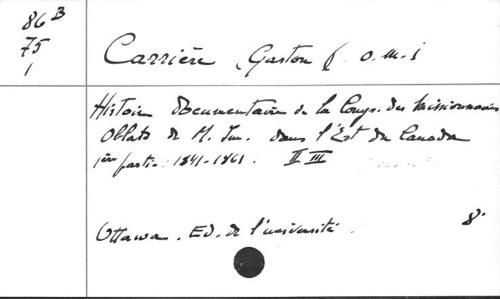 86 B
75
1
Carrière, Gaston f. o.m.i
Histoire Documentaire de la Cong. des Missionnaires
Oblats de M. Im. dans l'Est du Canada
1ère partie. 1841-1861. II III
Ottawa. Ed. de l'université.
8°